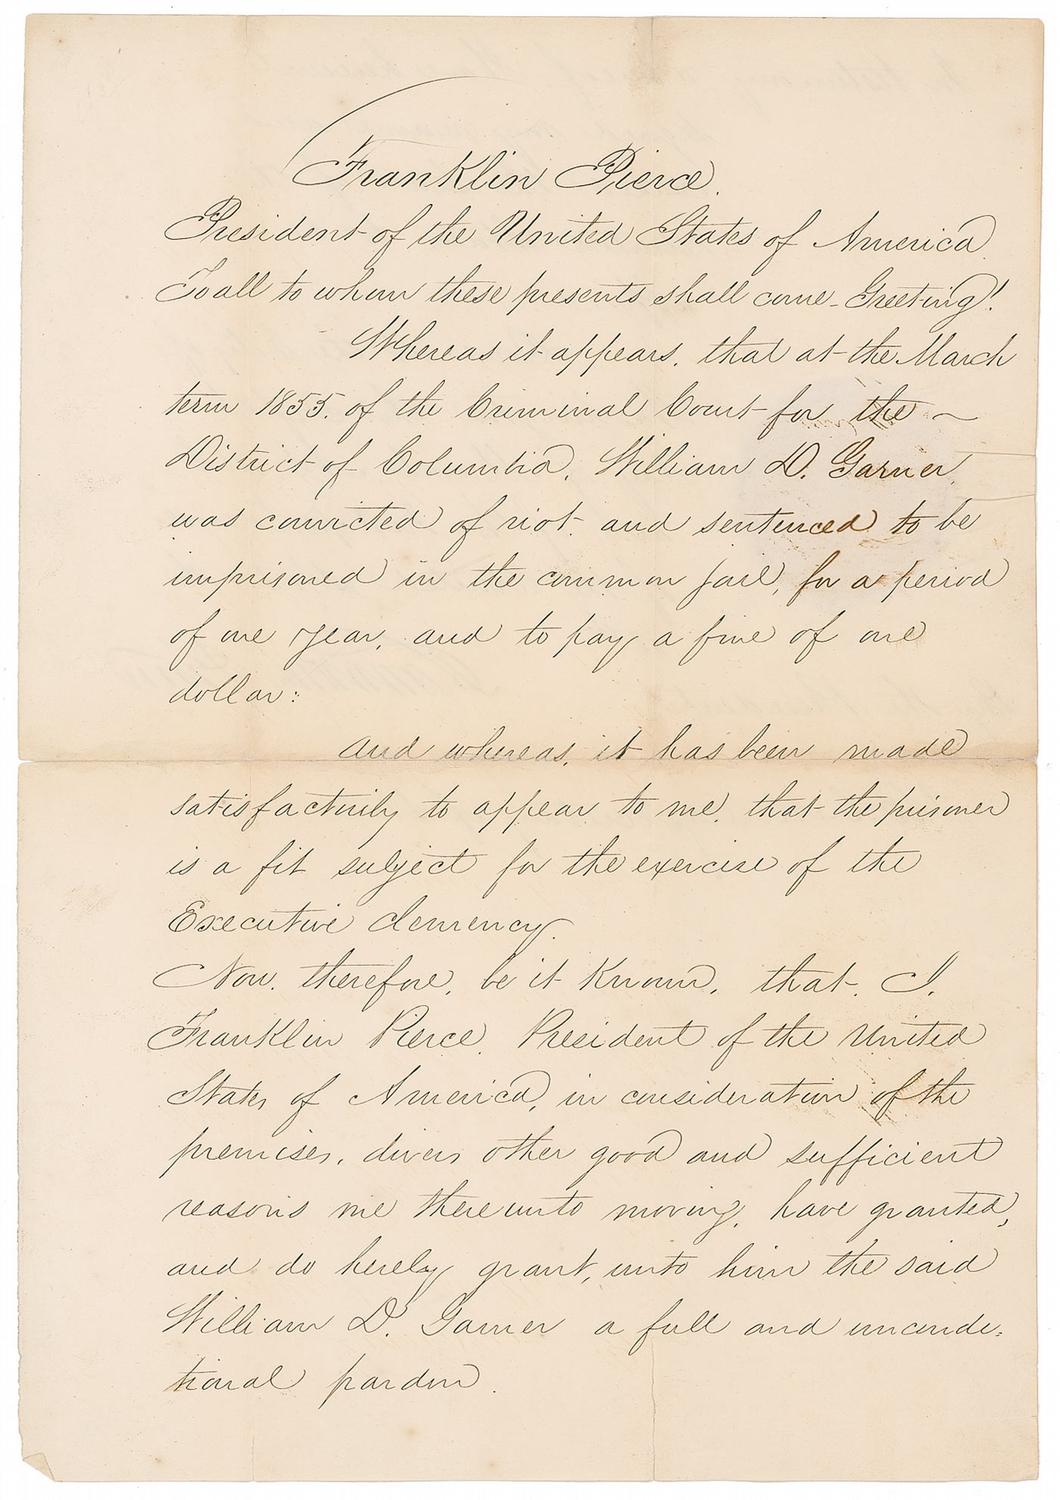 Franklin Pierce.
President of the United States of America.
To all to whom these presents shall come Greeting!
Whereas it appears, that at the March
term 1855. of the Criminal Court for the
District of Columbia, William D. Garner,
was convicted of riot and sentenced to be
imprisoned in the common jail, for a period
of one year, and to pay a fine of one
dollar:
And whereas, it has been made
satisfactorily to appear to me, that the prisoner
is a fit subject for the exercise of the
Executive clemency.
Now, therefore, be it Known, that, I,
Franklin Pierce, President of the United
States of America, in consideration of the
premises, divers other good and sufficient
reasons me thereunto moving, have granted,
and do hereby grant, unto him the said
William D. Garner a full and uncondi-
tional pardon.